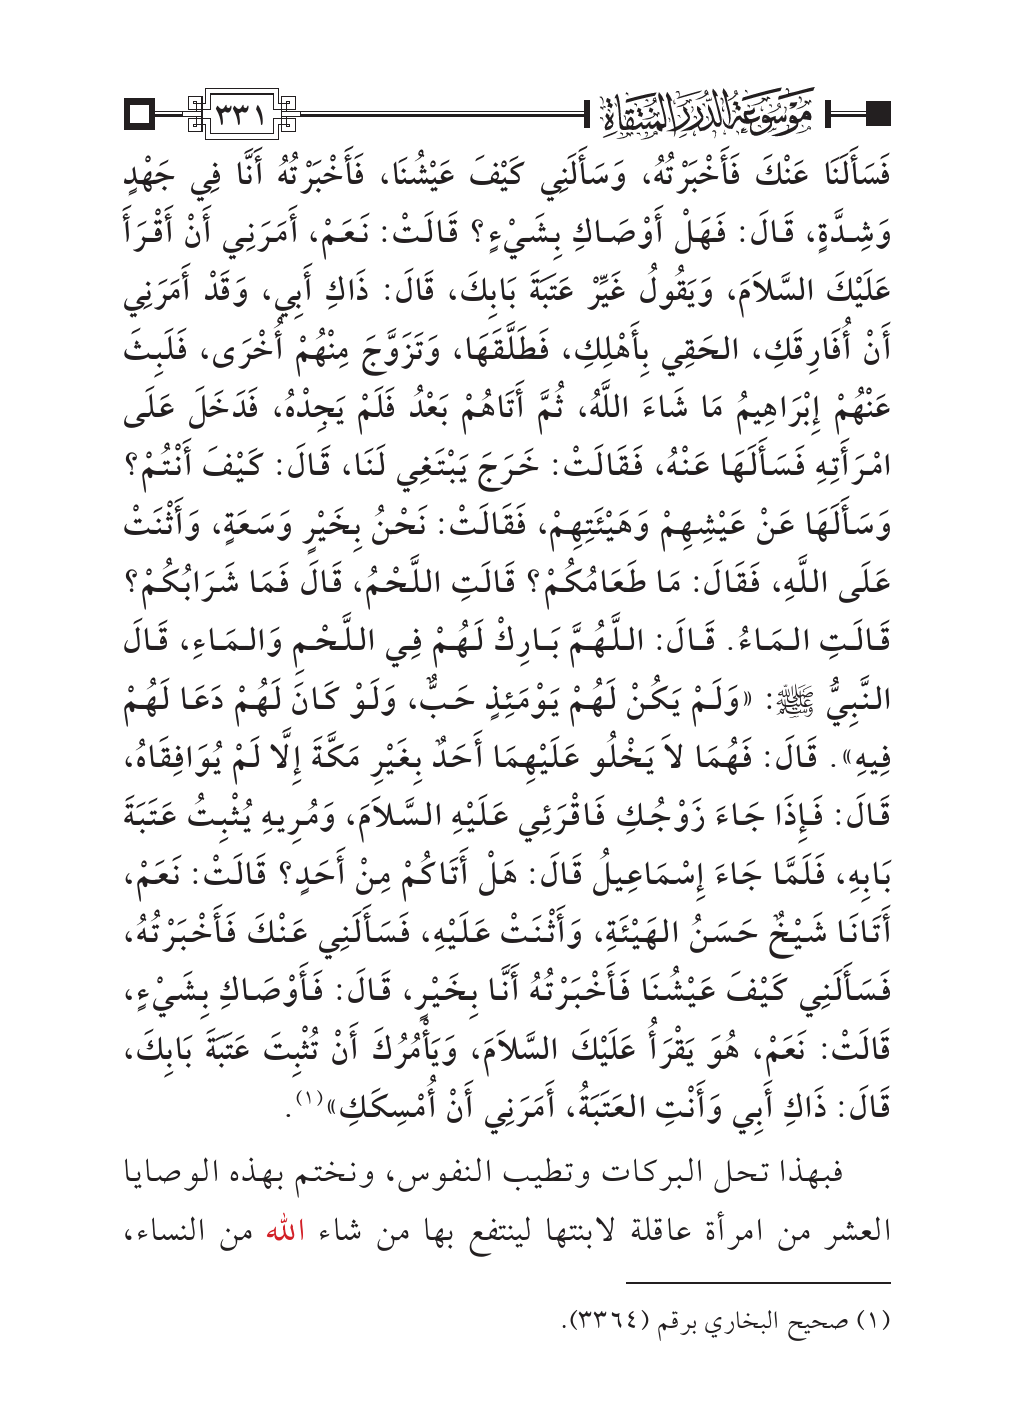 موسوعة الدرر المنتقاة
٣٣١
فَسَأَلَنَا عَنْكَ فَأَخْبَرْتُهُ، وَسَأَلَنِي كَيْفَ عَيْشُنَا، فَأَخْبَرْتُهُ أَنَّا فِي جَهْدٍ
وَشِدَّةٍ، قَالَ: فَهَلْ أَوْصَاكِ بِشَيْءٍ؟ قَالَتْ: نَعَمْ، أَمَرَنِي أَنْ أَقْرَأَ
عَلَيْكَ السَّلاَمَ، وَيَقُولُ غَيِّرْ عَتَبَةَ بَابِكَ، قَالَ: ذَاكِ أَبِي، وَقَدْ أَمَرَنِي
أَنْ أُفَارِقَكِ، الحَقِي بِأَهْلِكِ، فَطَلَّقَهَا، وَتَزَوَّجَ مِنْهُمْ أُخْرَى، فَلَبِثَ
عَنْهُمْ إِبْرَاهِيمُ مَا شَاءَ اللَّهُ، ثُمَّ أَتَاهُمْ بَعْدُ فَلَمْ يَجِدْهُ، فَدَخَلَ عَلَى
امْرَأَتِهِ فَسَأَلَهَا عَنْهُ، فَقَالَتْ: خَرَجَ يَبْتَغِي لَنَا، قَالَ: كَيْفَ أَنْتُمْ؟
وَسَأَلَهَا عَنْ عَيْشِهِمْ وَهَيْئَتِهِمْ، فَقَالَتْ: نَحْنُ بِخَيْرٍ وَسَعَةٍ، وَأَثْنَتْ
عَلَى اللَّهِ، فَقَالَ: مَا طَعَامُكُمْ؟ قَالَتِ اللَّحْمُ، قَالَ فَمَا شَرَابُكُمْ؟
قَالَتِ المَاءُ. قَالَ: اللَّهُمَّ بَارِكْ لَهُمْ فِي اللَّحْمِ وَالمَاءِ، قَالَ
النَّبِيُّ ﷺ: «وَلَمْ يَكُنْ لَهُمْ يَوْمَئِذٍ حَبٌّ، وَلَوْ كَانَ لَهُمْ دَعَا لَهُمْ
فِيهِ». قَالَ: فَهُمَا لاَ يَخْلُو عَلَيْهِمَا أَحَدٌ بِغَيْرِ مَكَّةَ إِلَّا لَمْ يُوَافِقَاهُ،
قَالَ: فَإِذَا جَاءَ زَوْجُكِ فَاقْرَئِي عَلَيْهِ السَّلاَمَ، وَمُرِيهِ يُثْبِتُ عَتَبَةَ
بَابِهِ، فَلَمَّا جَاءَ إِسْمَاعِيلُ قَالَ: هَلْ أَتَاكُمْ مِنْ أَحَدٍ؟ قَالَتْ: نَعَمْ،
أَتَانَا شَيْخٌ حَسَنُ الهَيْئَةِ، وَأَثْنَتْ عَلَيْهِ، فَسَأَلَنِي عَنْكَ فَأَخْبَرْتُهُ،
فَسَأَلَنِي كَيْفَ عَيْشُنَا فَأَخْبَرْتُهُ أَنَّا بِخَيْرٍ، قَالَ: فَأَوْصَاكِ بِشَيْءٍ،
قَالَتْ: نَعَمْ، هُوَ يَقْرَأُ عَلَيْكَ السَّلاَمَ، وَيَأْمُرُكَ أَنْ تُثْبِتَ عَتَبَةَ بَابِكَ،
قَالَ: ذَاكِ أَبِي وَأَنْتِ العَتَبَةُ، أَمَرَنِي أَنْ أُمْسِكَكِ»(١).
فبهذا تحل البركات وتطيب النفوس، ونختم بهذه الوصايا
العشر من امرأة عاقلة لابنتها لينتفع بها من شاء الله من النساء،
(١) صحيح البخاري برقم (٣٣٦٤).